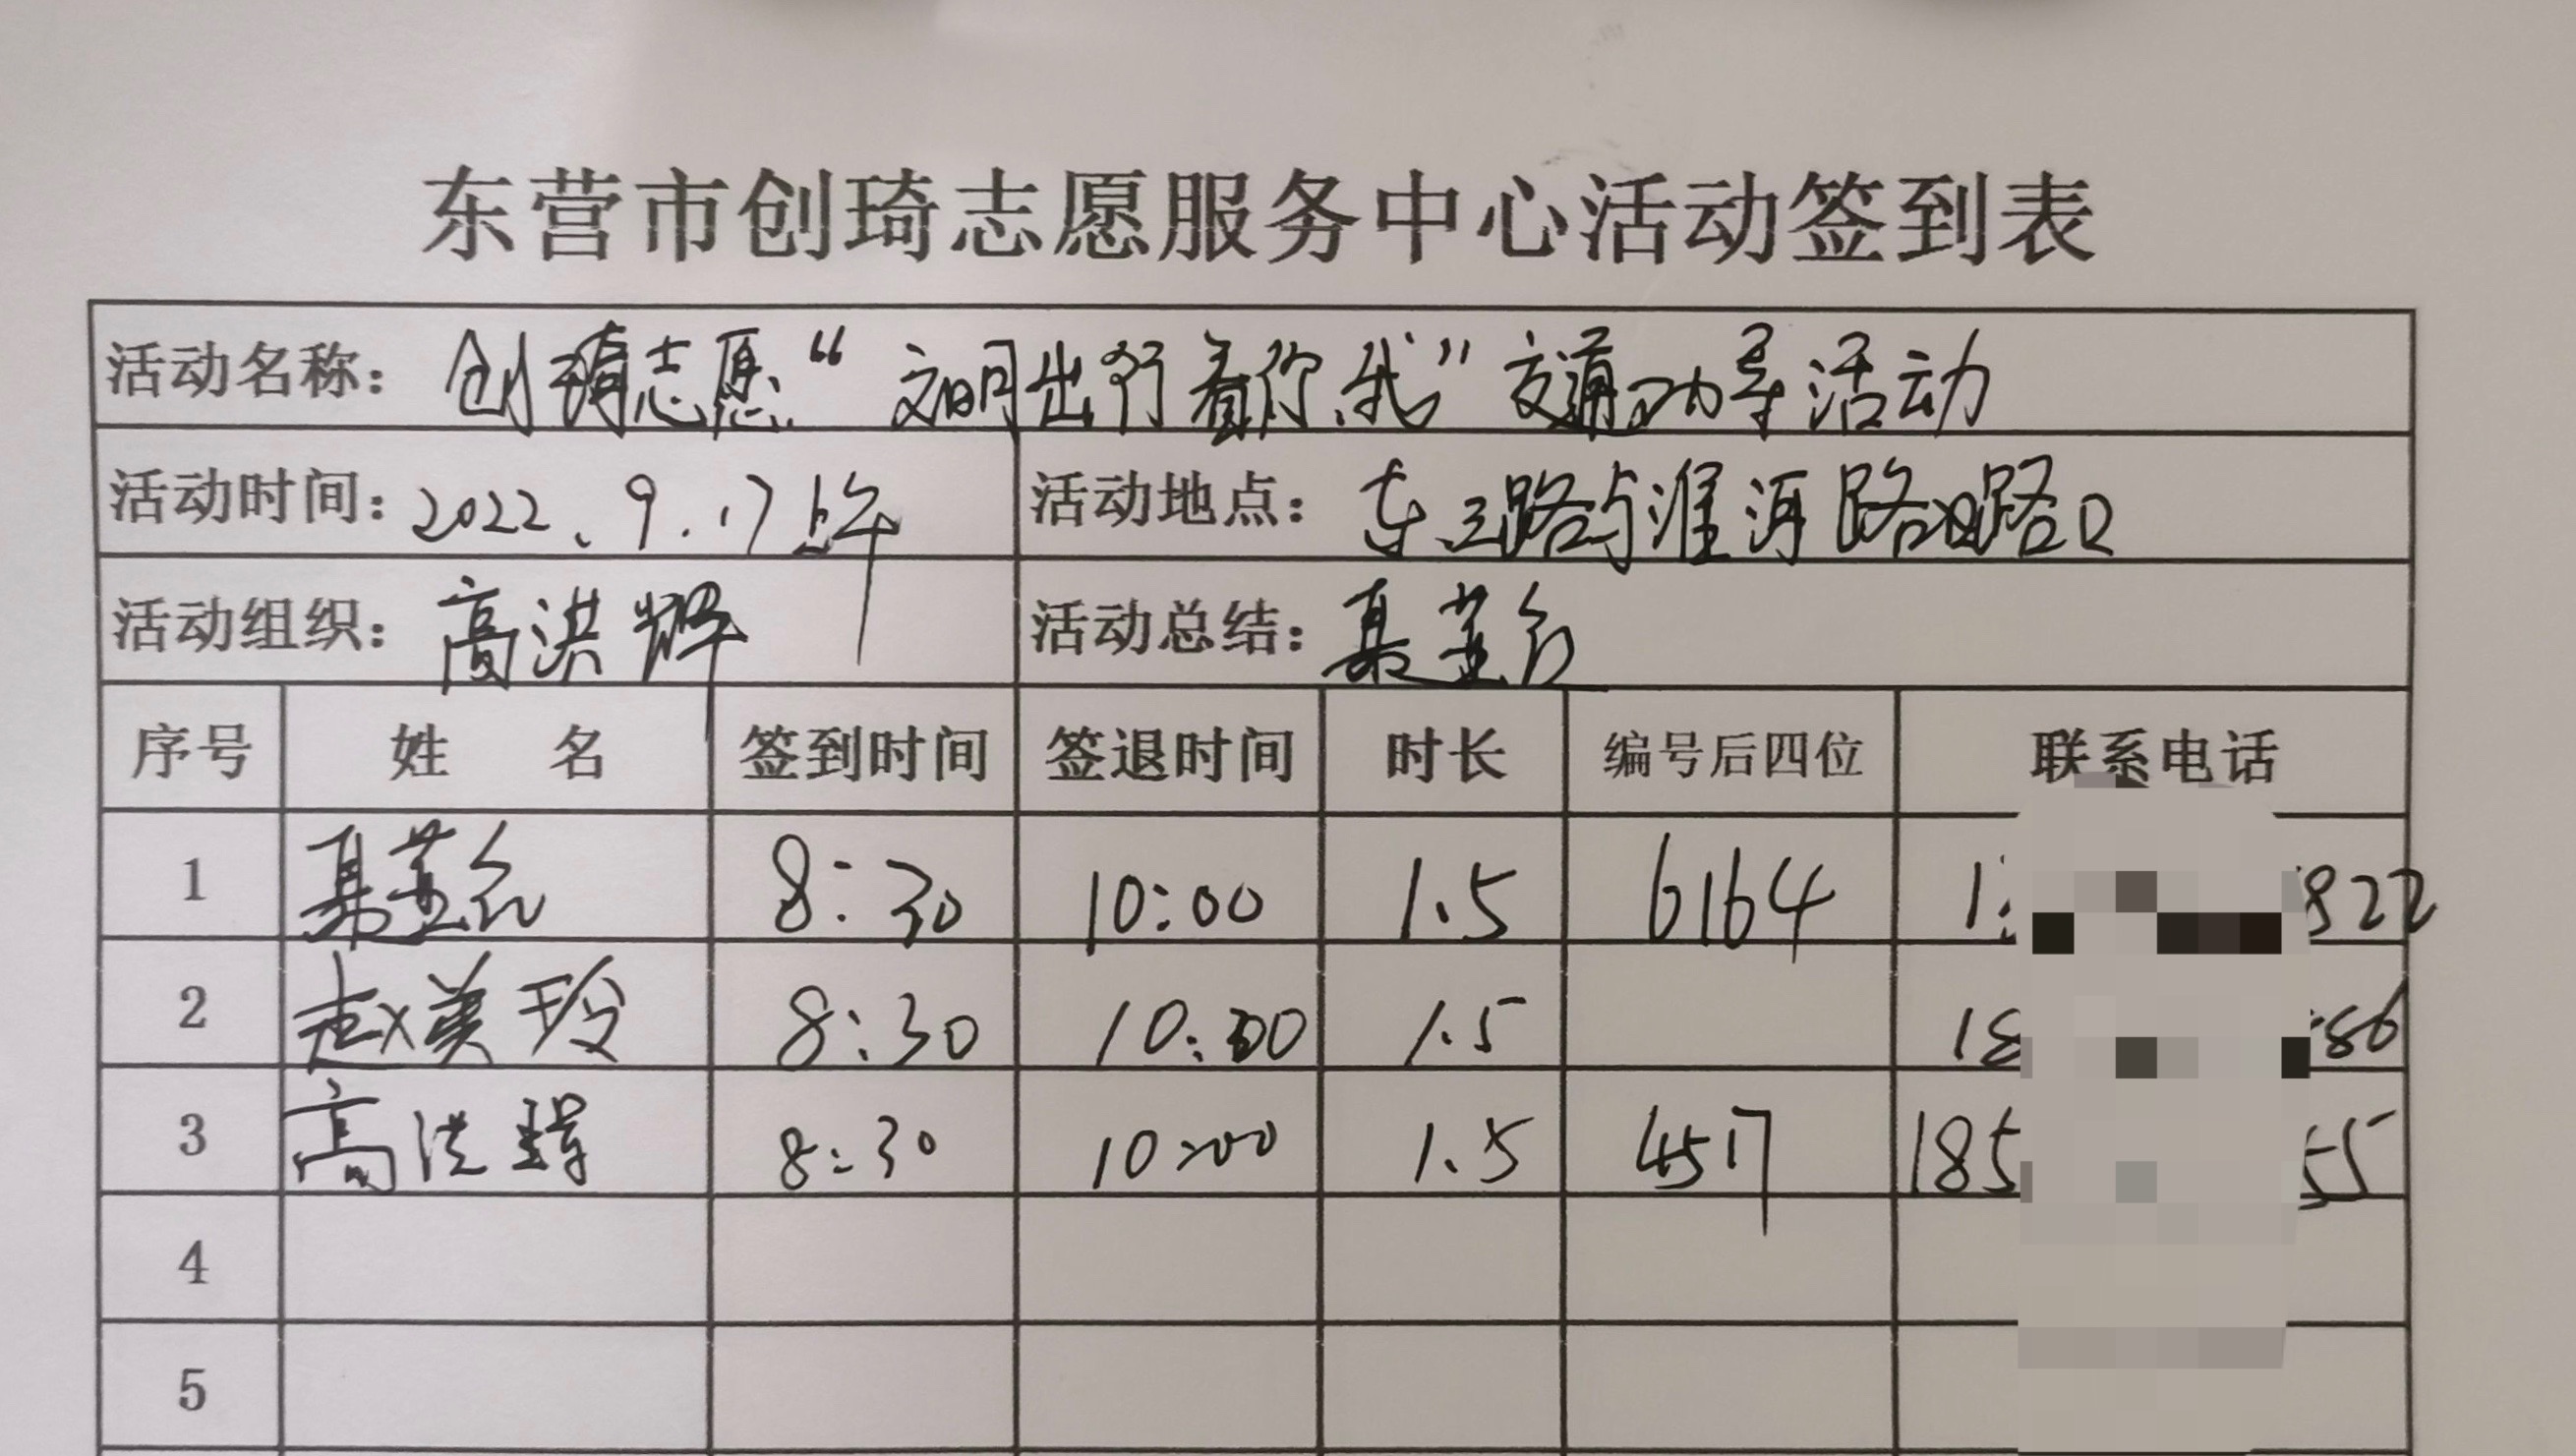 东营市创琦志愿服务中心活动签到表
活动名称：创琦志愿“文明出行看你、我”交通劝导活动
活动时间：2022.9.17上午 活动地点：东三路与淮河路路口
活动组织：高洪辉 活动总结：聂
序号 姓 名 签到时间 签退时间 时长 编号后四位 联系电话
1 聂 8:30 10:00 1.5 6164 1 822
2 赵美玲 8:30 10:00 1.5 18 86
3 高洪辉 8:30 10:00 1.5 4517 185 55
4
5